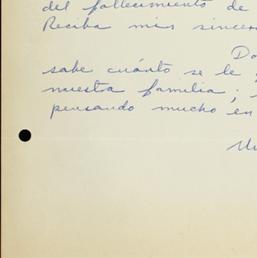 del fallecimiento de
Reciba mis sincer
Do
sabe cuánto se le
nuestra familia;
pensando mucho en